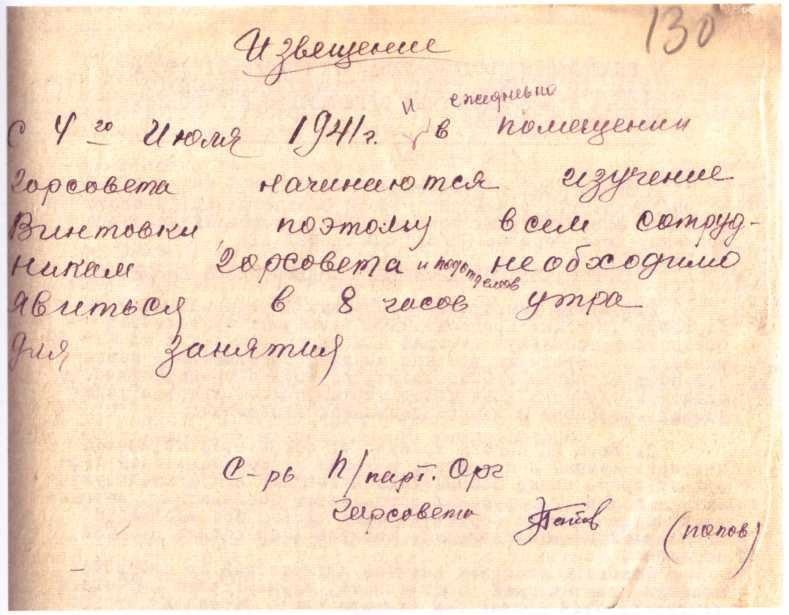 130
Извещение
С 4го Июля 1941г. и ежедневно в помещении
горсовета начинаются изучение
Винтовки поэтому всем сотруд-
никам горсовета и подотделов необходимо
явиться в 8 часов утра
для занятия
С-рь п/парт. Орг
Горсовета Попов (попов)